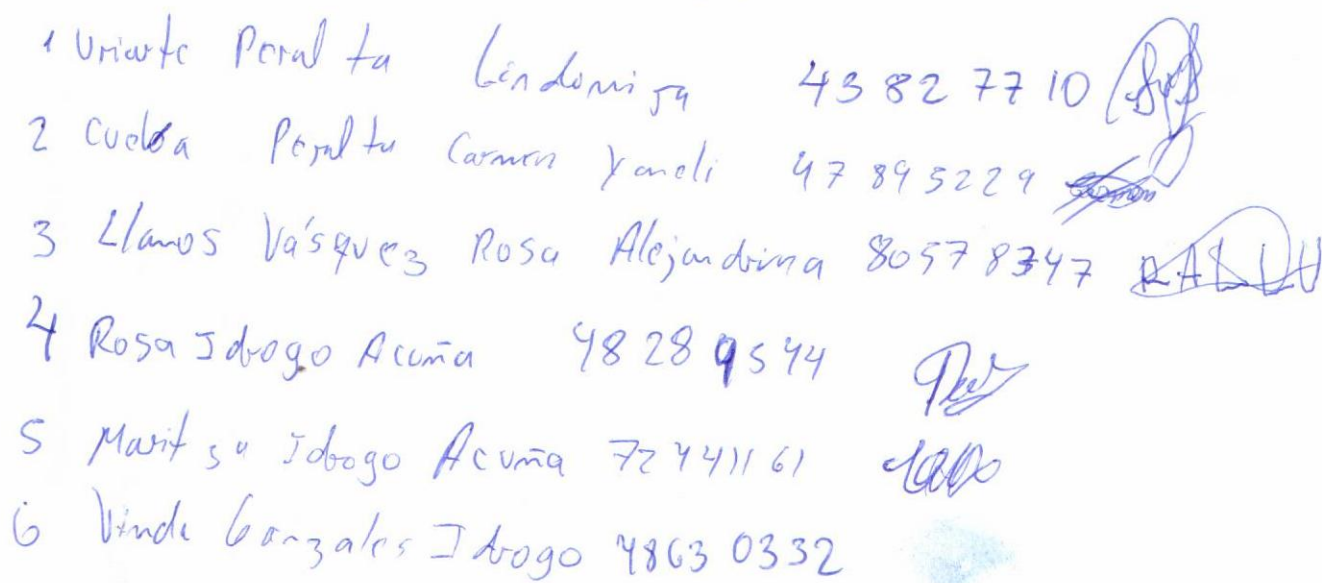 1 Uriarte Peralta Lindomira 43 82 77 10
2 Cueva Peralta Carmen Yaneli 47 895229
3 Llanos Vásquez Rosa Alejandrina 80578347 RALLV
4 Rosa Idrogo Acuña 48289544
5 Maritza Idrogo Acuña 72441161
6 Gonzales Idrogo 4863 0332